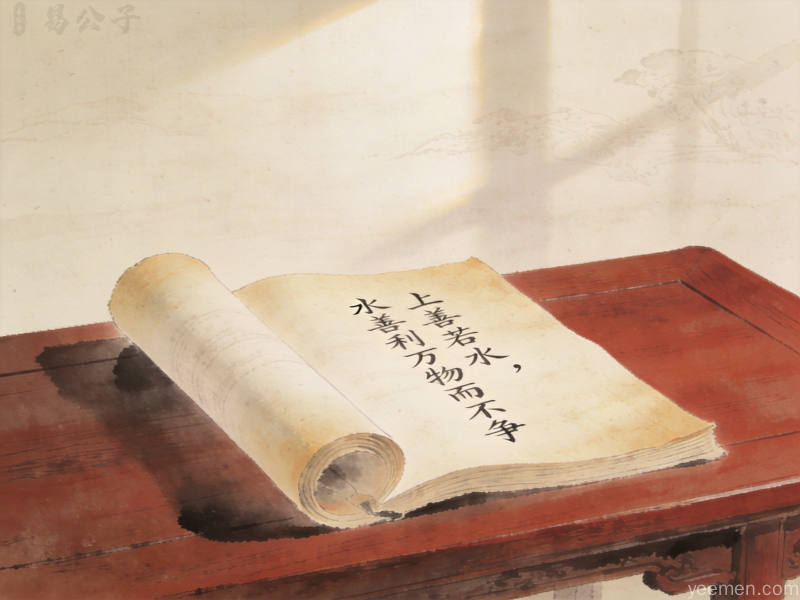 上善若水，
水善利万物而不争
易公子
yeemen.com